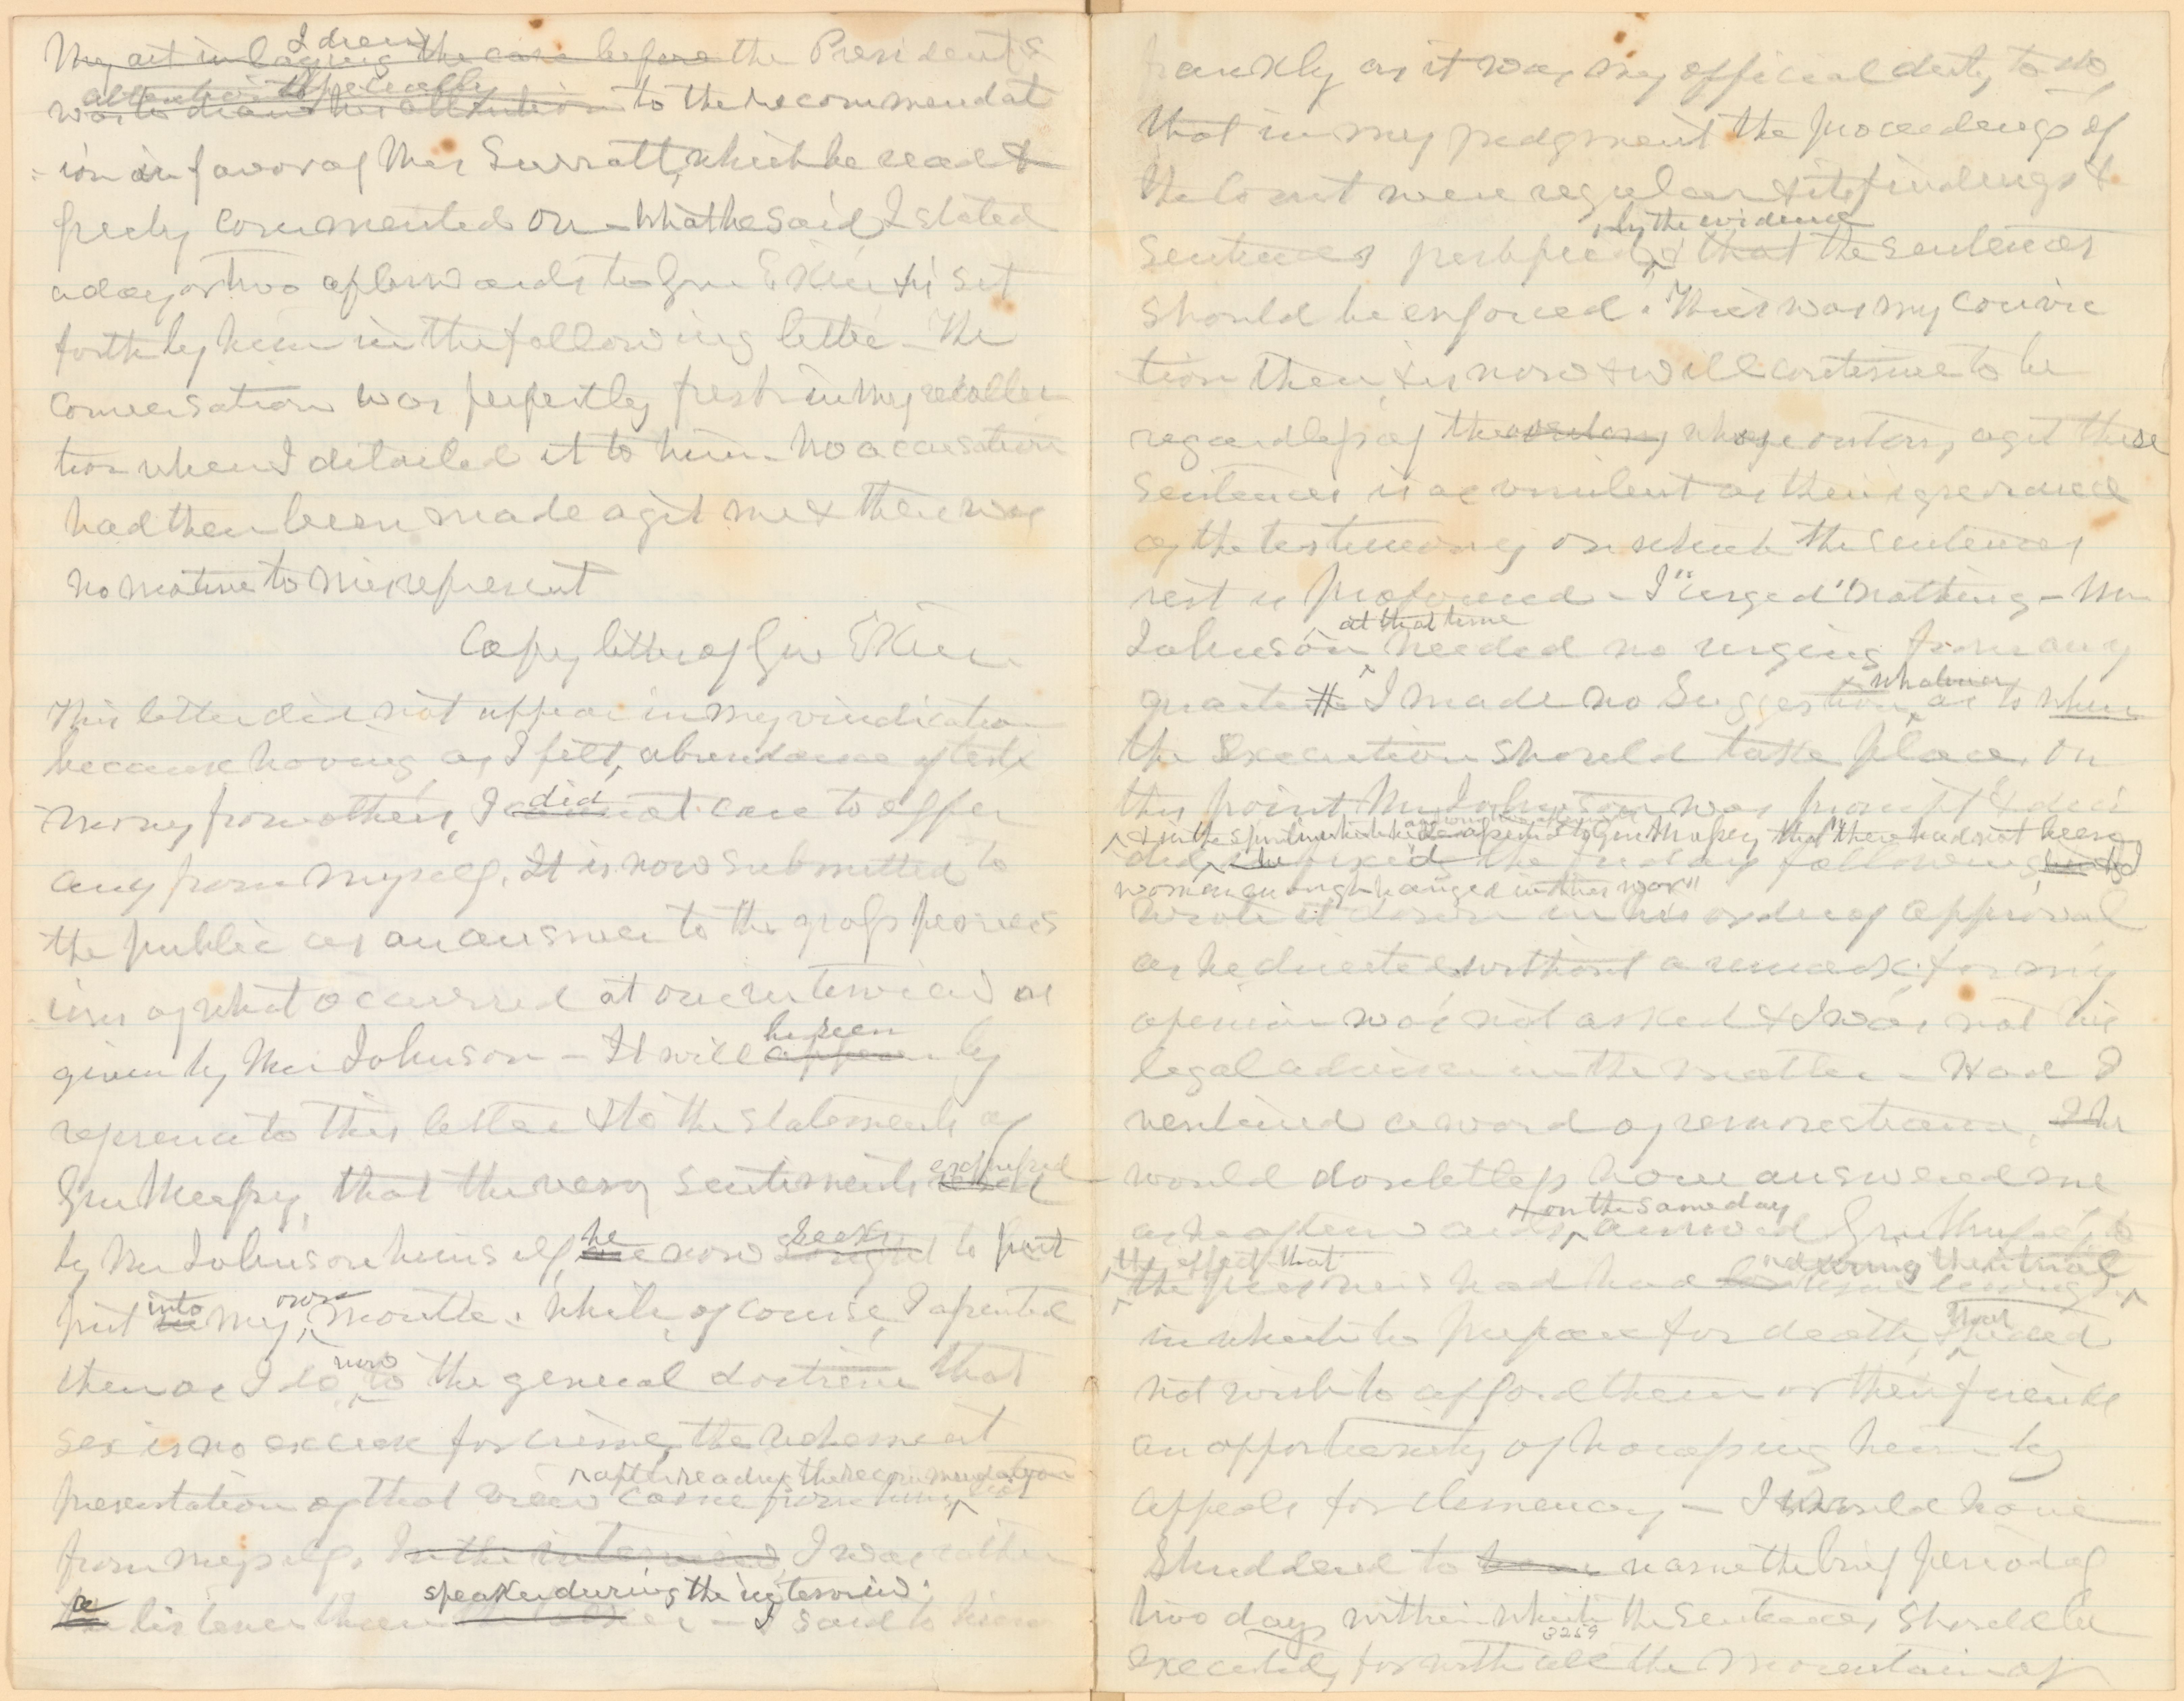 My act in laying the case before I drew the President's
was to draw his attention attention specially to the recommendat
ion in favor of Mrs Surratt, which he read &
freely commented on - What he said I stated
a day or two afterwards to Gen Ekin & is set
forth by him in the following letter - The
conversation was perfectly fresh in my recollec
tion when I detailed it to him - No accusation
had then been made agst me & there was
no motive to misrepresent
Copy letter of Gen Ekin
This letter did not appear in my vindication
because having, as I felt, abundance of testi
mony from others, I did not care to offer
any from myself. It is now submitted to
the public as an answer to the gross pervers
ions of what occurred at our interview as
given by Mr Johnson - It will appear be seen by
reference to this letter & to the statements of
Gen Mussey, that the very sentiments expressed
by Mr Johnson himself, he now seeks to put
put in into my own mouth. While, of course, I assented
then as I do now to the general doctrine that
sex is no excuse for crime, the vehement
presentation of that view came from him, after reading the recommendation not
from myself. In the interview, I was rather
the a listener than speaker during the interview. - I said to him
frankly as it was my official duty to do,
that in my judgment the proceedings of
the Court were regular & its findings &
sentences justified by the evidence & that the sentences
should be enforced. This was my convic
tion then & is now & will continue to be
regardless of the whose outcry agst these
sentences is as virulent as their ignorance
of the testimony on which the sentences
rest is profound - I "urged" nothing - Mr
Johnson at that time needed no urging from any
quarter # I made no suggestion whatever as to when
the execution should take place. On
this point Mr Johnson was prompt & deci
ded & in the spirit in which he said to Gen Mussey that "there had not been
he fixed the friday following,
women enough hanged in this war"
wrote it down in his order of approval
as he directed without a remark; for my
opinion was not asked & I was not his
legal adviser in the matter - Had I
ventured a word of remonstrance, he
would doubtless have answered me
as he afterwards on the same day answered Gen Mussey, to
the effect that
the prisoners had had time enough during the trial
in which to prepare for death, & that he did
not wish to afford them or their friends
an opportunity of harassing him by
appeals for clemency - I would have
shuddered to name the brief period of
two days within which the sentences should be
3259
executed, for with all the mountain of